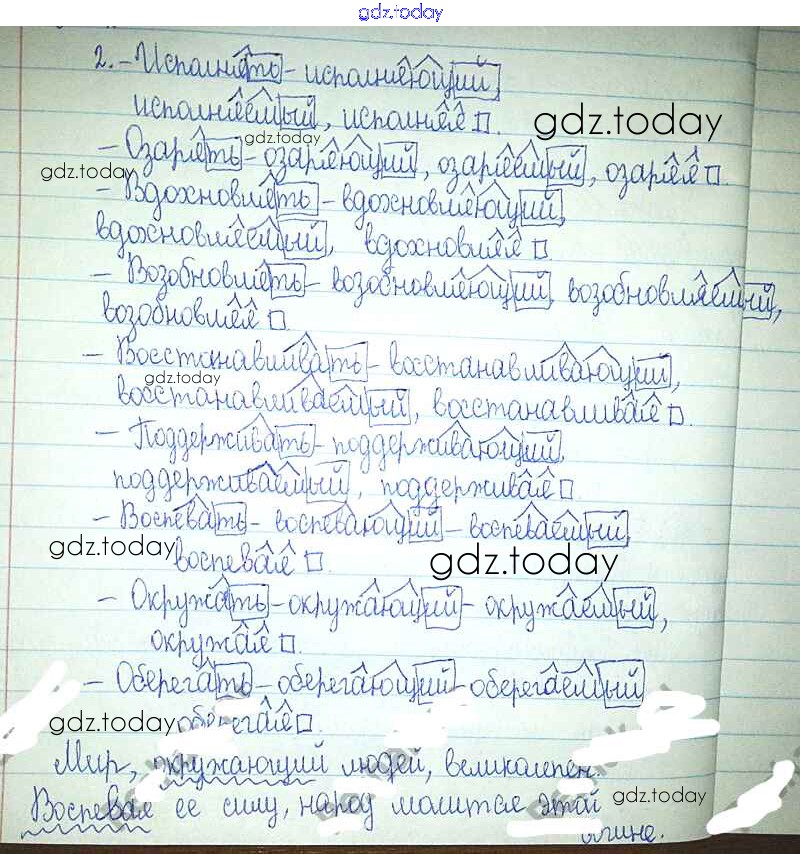 gdz.today
2. - Исполнять - исполняющий,
исполняемый, исполняя.
gdz.today
- Озарять - озаряющий, озаряемый, озаряя.
gdz.today
gdz.today
- Вдохновлять - вдохновляющий,
вдохновляемый, вдохновляя.
- Возобновлять - возобновляющий, возобновляемый,
возобновляя.
- Восстанавливать - восстанавливающий,
gdz.today
восстанавливаемый, восстанавливая.
- Поддерживать - поддерживающий,
поддерживаемый, поддерживая
- Воспевать - воспевающий - воспеваемый,
gdz.today
воспевая.
gdz.today
- Окружать - окружающий - окружаемый,
окружая.
- Оберегать - оберегающий - оберегаемый
gdz.today
оберегая.
Мир, окружающий людей, великолепен.
Воспевая ее силу, народ молится этой
gdz.today